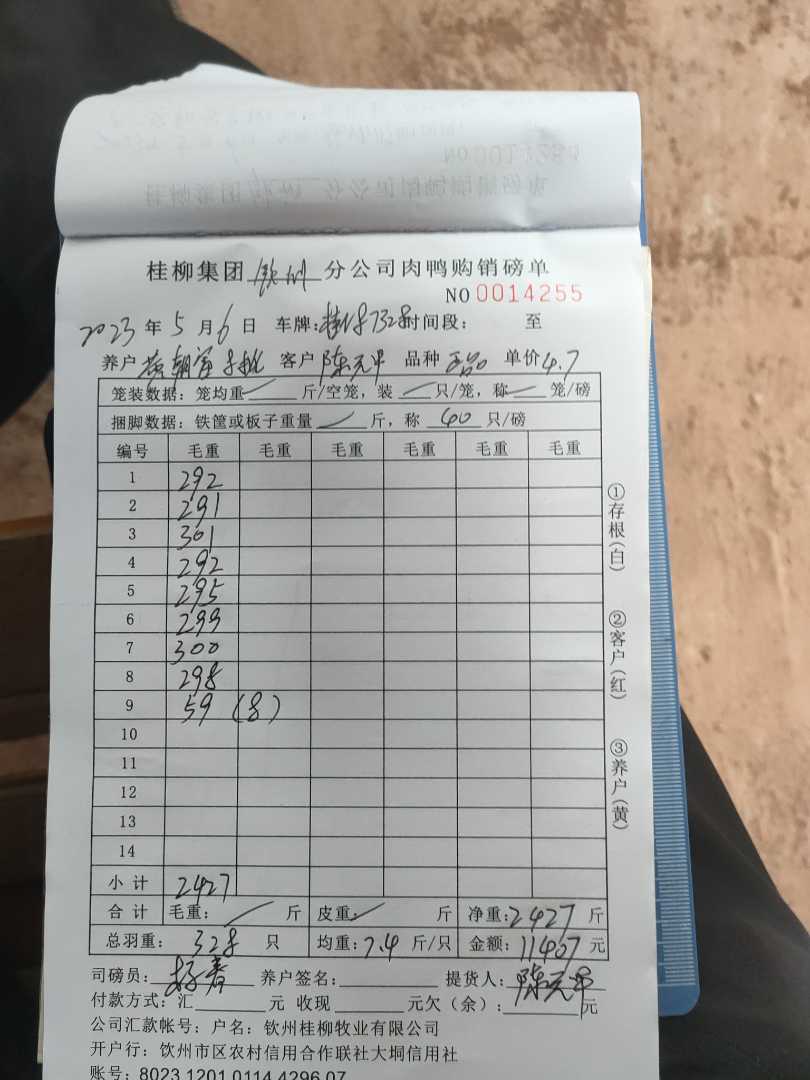 桂柳集团 钦州 分公司肉鸭购销磅单
NO 0014255
2023 年 5 月 6 日 车牌: 时间段: 至
养户 黄朝富 客户 陈元甲 品种 单价 4.7
笼装数据: 笼均重 斤/空笼, 装 只/笼, 称 笼/磅
捆脚数据: 铁筐或板子重量 斤, 称 40 只/磅
编号 毛重 毛重 毛重 毛重 毛重 毛重
1 292
2 291
3 301
4 292
5 295
6 299
7 300
8 298
9 59 (8)
10
11
12
13
14
小计 2427
合计 毛重: 斤 皮重: 斤 净重: 2427 斤
总羽重: 328 只 均重: 7.4 斤/只 金额: 11407 元
司磅员: 养户签名: 提货人: 陈元甲
付款方式: 汇 元 收现 元欠(余): 元
公司汇款帐号: 户名: 钦州桂柳牧业有限公司
开户行: 钦州市区农村信用合作联社大垌信用社
账号: 8023 1201 0114 4296 07
①存根(白)
②客户(红)
③养户(黄)